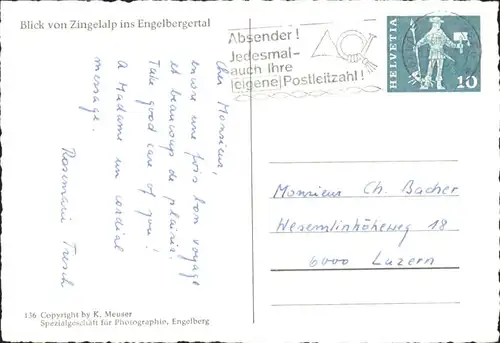 Blick von Zingelalp ins Engelbergertal
Absender!
Jedesmal-
auch Ihre
(eigene) Postleitzahl!
HELVETIA
10
Cher Monsieur,
encore une fois bon voyage
et beaucoup de plaisir.
Take good care of you!
A Madame un cordial
message.
Rosemarie Tresch
Monsieur Ch. Bacher
Wesemlinhöheweg 18
6000 Luzern
136 Copyright by K. Meuser
Spezialgeschäft für Photographie, Engelberg